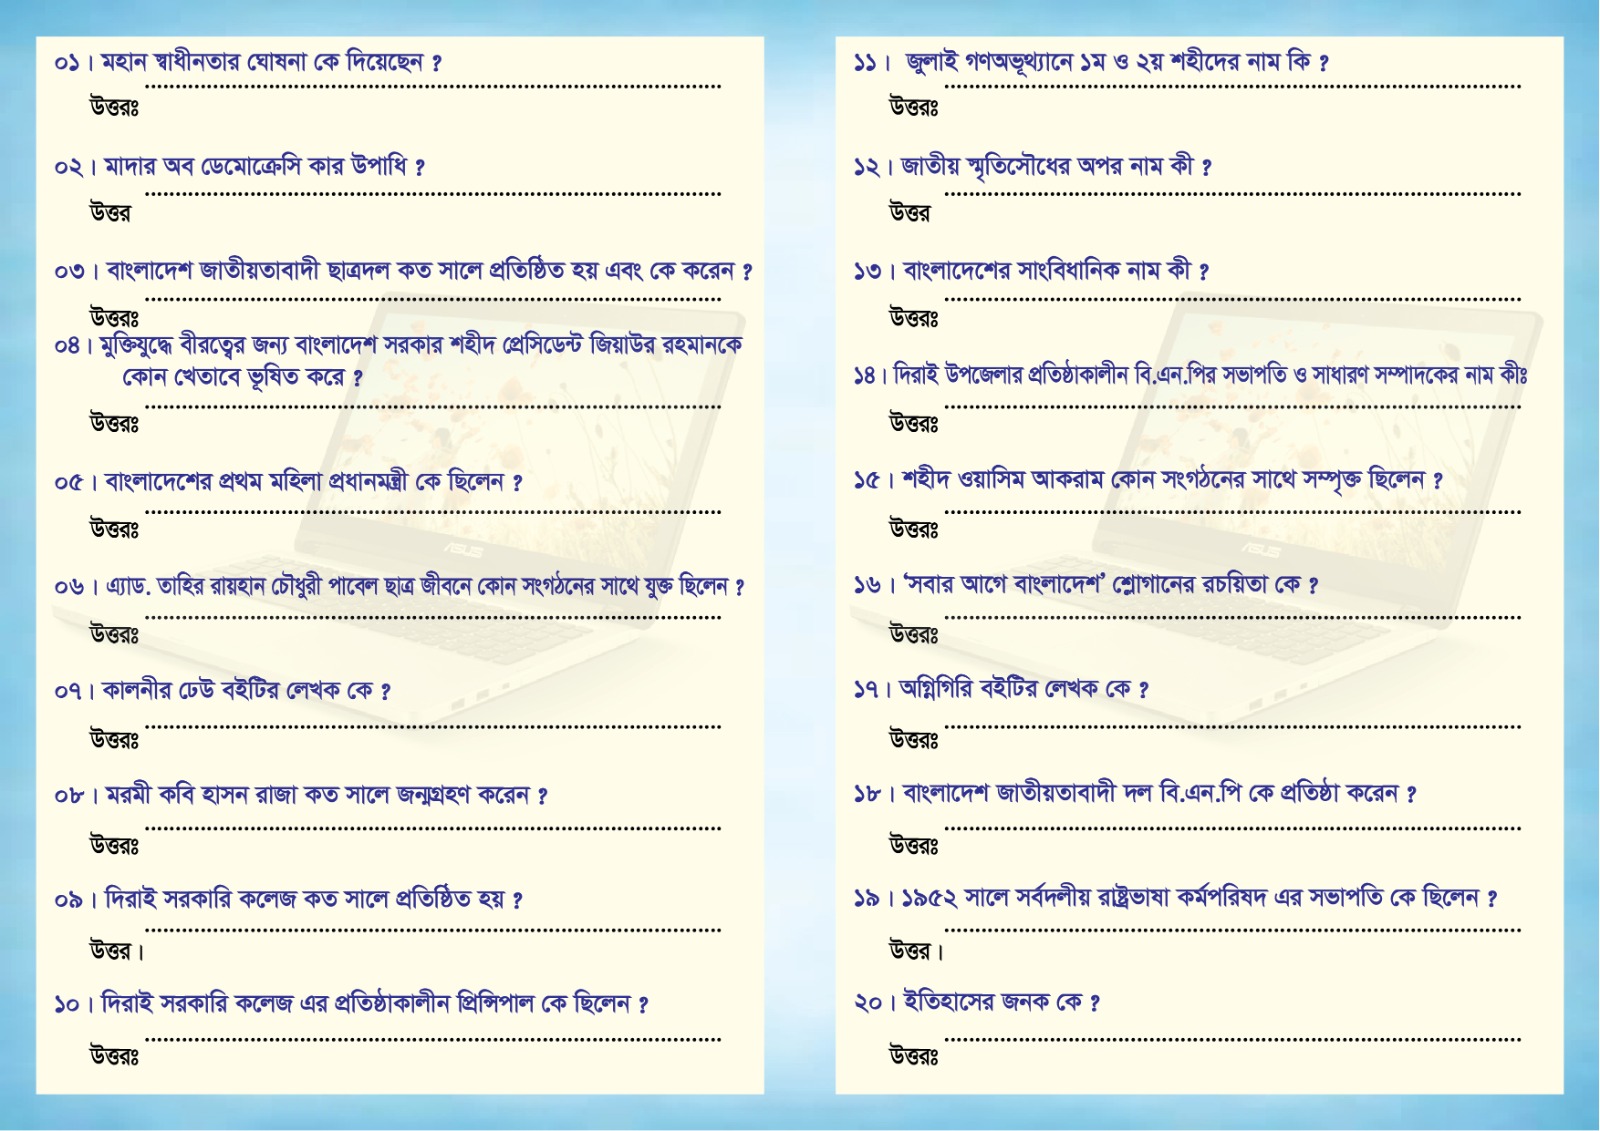 ০১। মহান স্বাধীনতার ঘোষনা কে দিয়েছেন ?
উত্তরঃ
০২। মাদার অব ডেমোক্রেসি কার উপাধি ?
উত্তর
০৩। বাংলাদেশ জাতীয়তাবাদী ছাত্রদল কত সালে প্রতিষ্ঠিত হয় এবং কে করেন ?
উত্তরঃ
০৪। মুক্তিযুদ্ধে বীরত্বের জন্য বাংলাদেশ সরকার শহীদ প্রেসিডেন্ট জিয়াউর রহমানকে
কোন খেতাবে ভূষিত করে ?
উত্তরঃ
০৫। বাংলাদেশের প্রথম মহিলা প্রধানমন্ত্রী কে ছিলেন ?
উত্তরঃ
০৬। এ্যাড. তাহির রায়হান চৌধুরী পাবেল ছাত্র জীবনে কোন সংগঠনের সাথে যুক্ত ছিলেন ?
উত্তরঃ
০৭। কালনীর ঢেউ বইটির লেখক কে ?
উত্তরঃ
০৮। মরমী কবি হাসন রাজা কত সালে জন্মগ্রহণ করেন ?
উত্তরঃ
০৯। দিরাই সরকারি কলেজ কত সালে প্রতিষ্ঠিত হয় ?
উত্তর।
১০। দিরাই সরকারি কলেজ এর প্রতিষ্ঠাকালীন প্রিন্সিপাল কে ছিলেন ?
উত্তরঃ
১১। জুলাই গণঅভূথ্যানে ১ম ও ২য় শহীদের নাম কি ?
উত্তরঃ
১২। জাতীয় স্মৃতিসৌধের অপর নাম কী ?
উত্তর
১৩। বাংলাদেশের সাংবিধানিক নাম কী ?
উত্তরঃ
১৪। দিরাই উপজেলার প্রতিষ্ঠাকালীন বি.এন.পির সভাপতি ও সাধারণ সম্পাদকের নাম কীঃ
উত্তরঃ
১৫। শহীদ ওয়াসিম আকরাম কোন সংগঠনের সাথে সম্পৃক্ত ছিলেন ?
উত্তরঃ
১৬। ‘সবার আগে বাংলাদেশ’ শ্লোগানের রচয়িতা কে ?
উত্তরঃ
১৭। অগ্নিগিরি বইটির লেখক কে ?
উত্তরঃ
১৮। বাংলাদেশ জাতীয়তাবাদী দল বি.এন.পি কে প্রতিষ্ঠা করেন ?
উত্তরঃ
১৯। ১৯৫২ সালে সর্বদলীয় রাষ্ট্রভাষা কর্মপরিষদ এর সভাপতি কে ছিলেন ?
উত্তর।
২০। ইতিহাসের জনক কে ?
উত্তরঃ
ASUS
ASUS